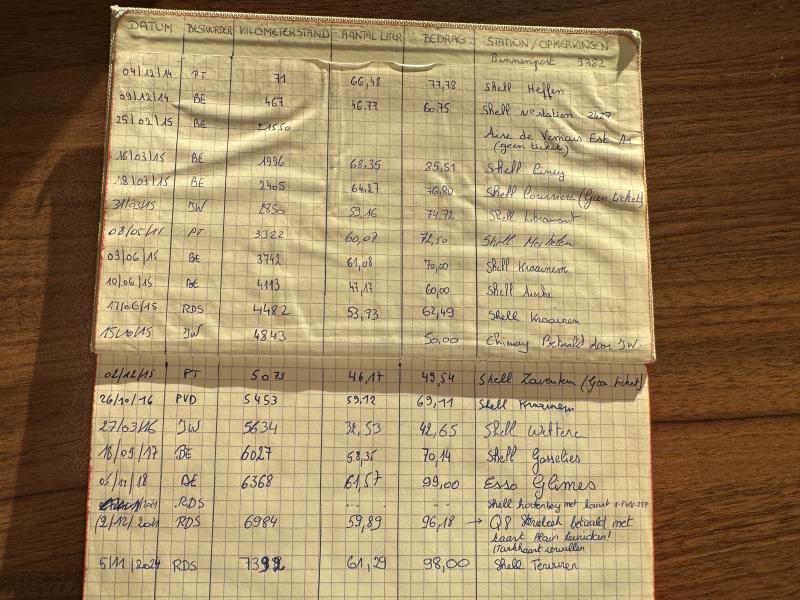 DATUM BESTUURDER KILOMETERSTAND AANTAL LITER BEDRAG STATION/OPMERKINGEN
Binnenpost 9382
04/12/14 PT 71 66,48 77,78 Shell Heffen
09/12/14 BE 467 46.77 60.75 Shell station 2427
25/02/15 BE ±1550 Aire de Vemars Est A1
(geen ticket)
16/03/15 BE 1996 68.35 85,51 Shell Ciney
18/03/15 BE 2405 64,27 76,80 Shell (Geen ticket)
31/03/15 JW 2850 53,16 74,72 Shell Libramont
08/05/15 PT 3322 60,07 72,50 Shell Mechelen
09/06/15 BE 3742 61,08 70,00 Shell Kraainem
10/06/15 BE 4113 47,17 60,00 Shell
17/06/15 RDS 4482 53,73 62,49 Shell Kraainem
15/10/15 JW 4843 50,00 Chimay Betaald door JW
02/12/15 PT 5073 46,17 49,54 Shell Zaventem (Geen ticket)
26/10/16 PVD 5453 59,12 69,11 Shell Kraainem
27/03/16 JW 5634 32,53 42,65 Shell Wetteren
18/09/17 BE 6027 58,35 70,14 Shell Gosselies
05/11/18 BE 6368 61,57 99,00 Esso Glimes
/2021 RDS ... .. Shell met kaart 1-FVV-757
12/12/2021 RDS 6984 59,89 96,18 → Q8 betaald met
kaart Alain
(Tankkaart vervallen
5/11/2024 RDS 7392 61,29 98,00 Shell Tervuren